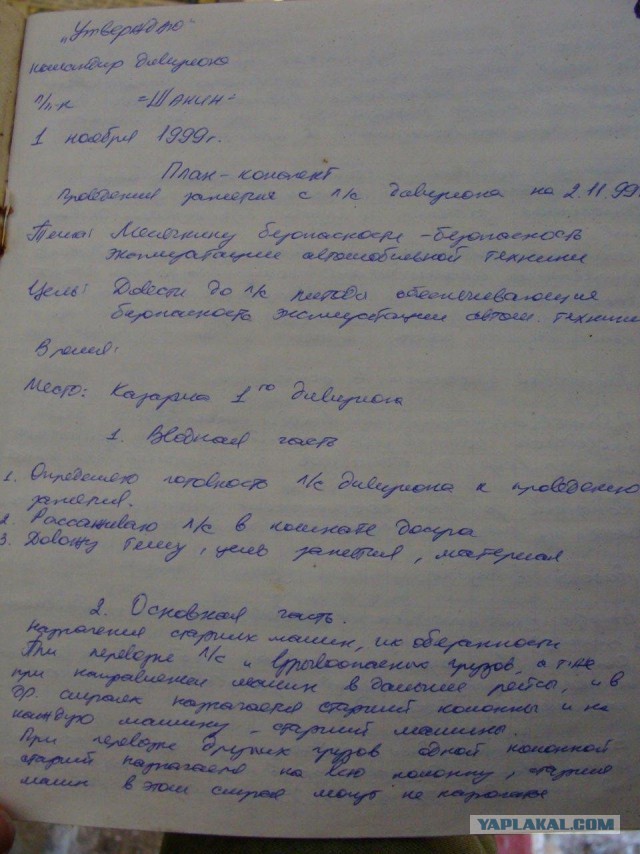 „Утверждаю"
командир дивизиона
п/п-к =Шанин=
1 ноября 1999г.
План-конспект
Проведения занятия с л/с дивизиона на 2.11.99
Тема: безопасности - безопасность
эксплуатации автомобильной техники
Цель: Довести до л/с метода обеспечивающия
безопасность эксплуатации автом. техники
Время:
Место: Казарма 1го дивизиона
1. Вводная часть
1. Определяю готовность л/с дивизиона к проведению
занятия.
2. Рассаживаю л/с в комнате досуга
3. Довожу тему, цель занятия, материал
2. Основная часть.
Назначения старших машин, их обязанности
При перевозке л/с и взрывоопасных грузов, а т.же
при направлении машин в дальние рейсы, и в
др. случаях назначается старший колонны и на
каждую машину - старший машины.
При перевозке других грузов одной колонной
старший назначается на всю колонну, старшие
машин в этом случае могут не назначаться
YAPLAKAL.COM